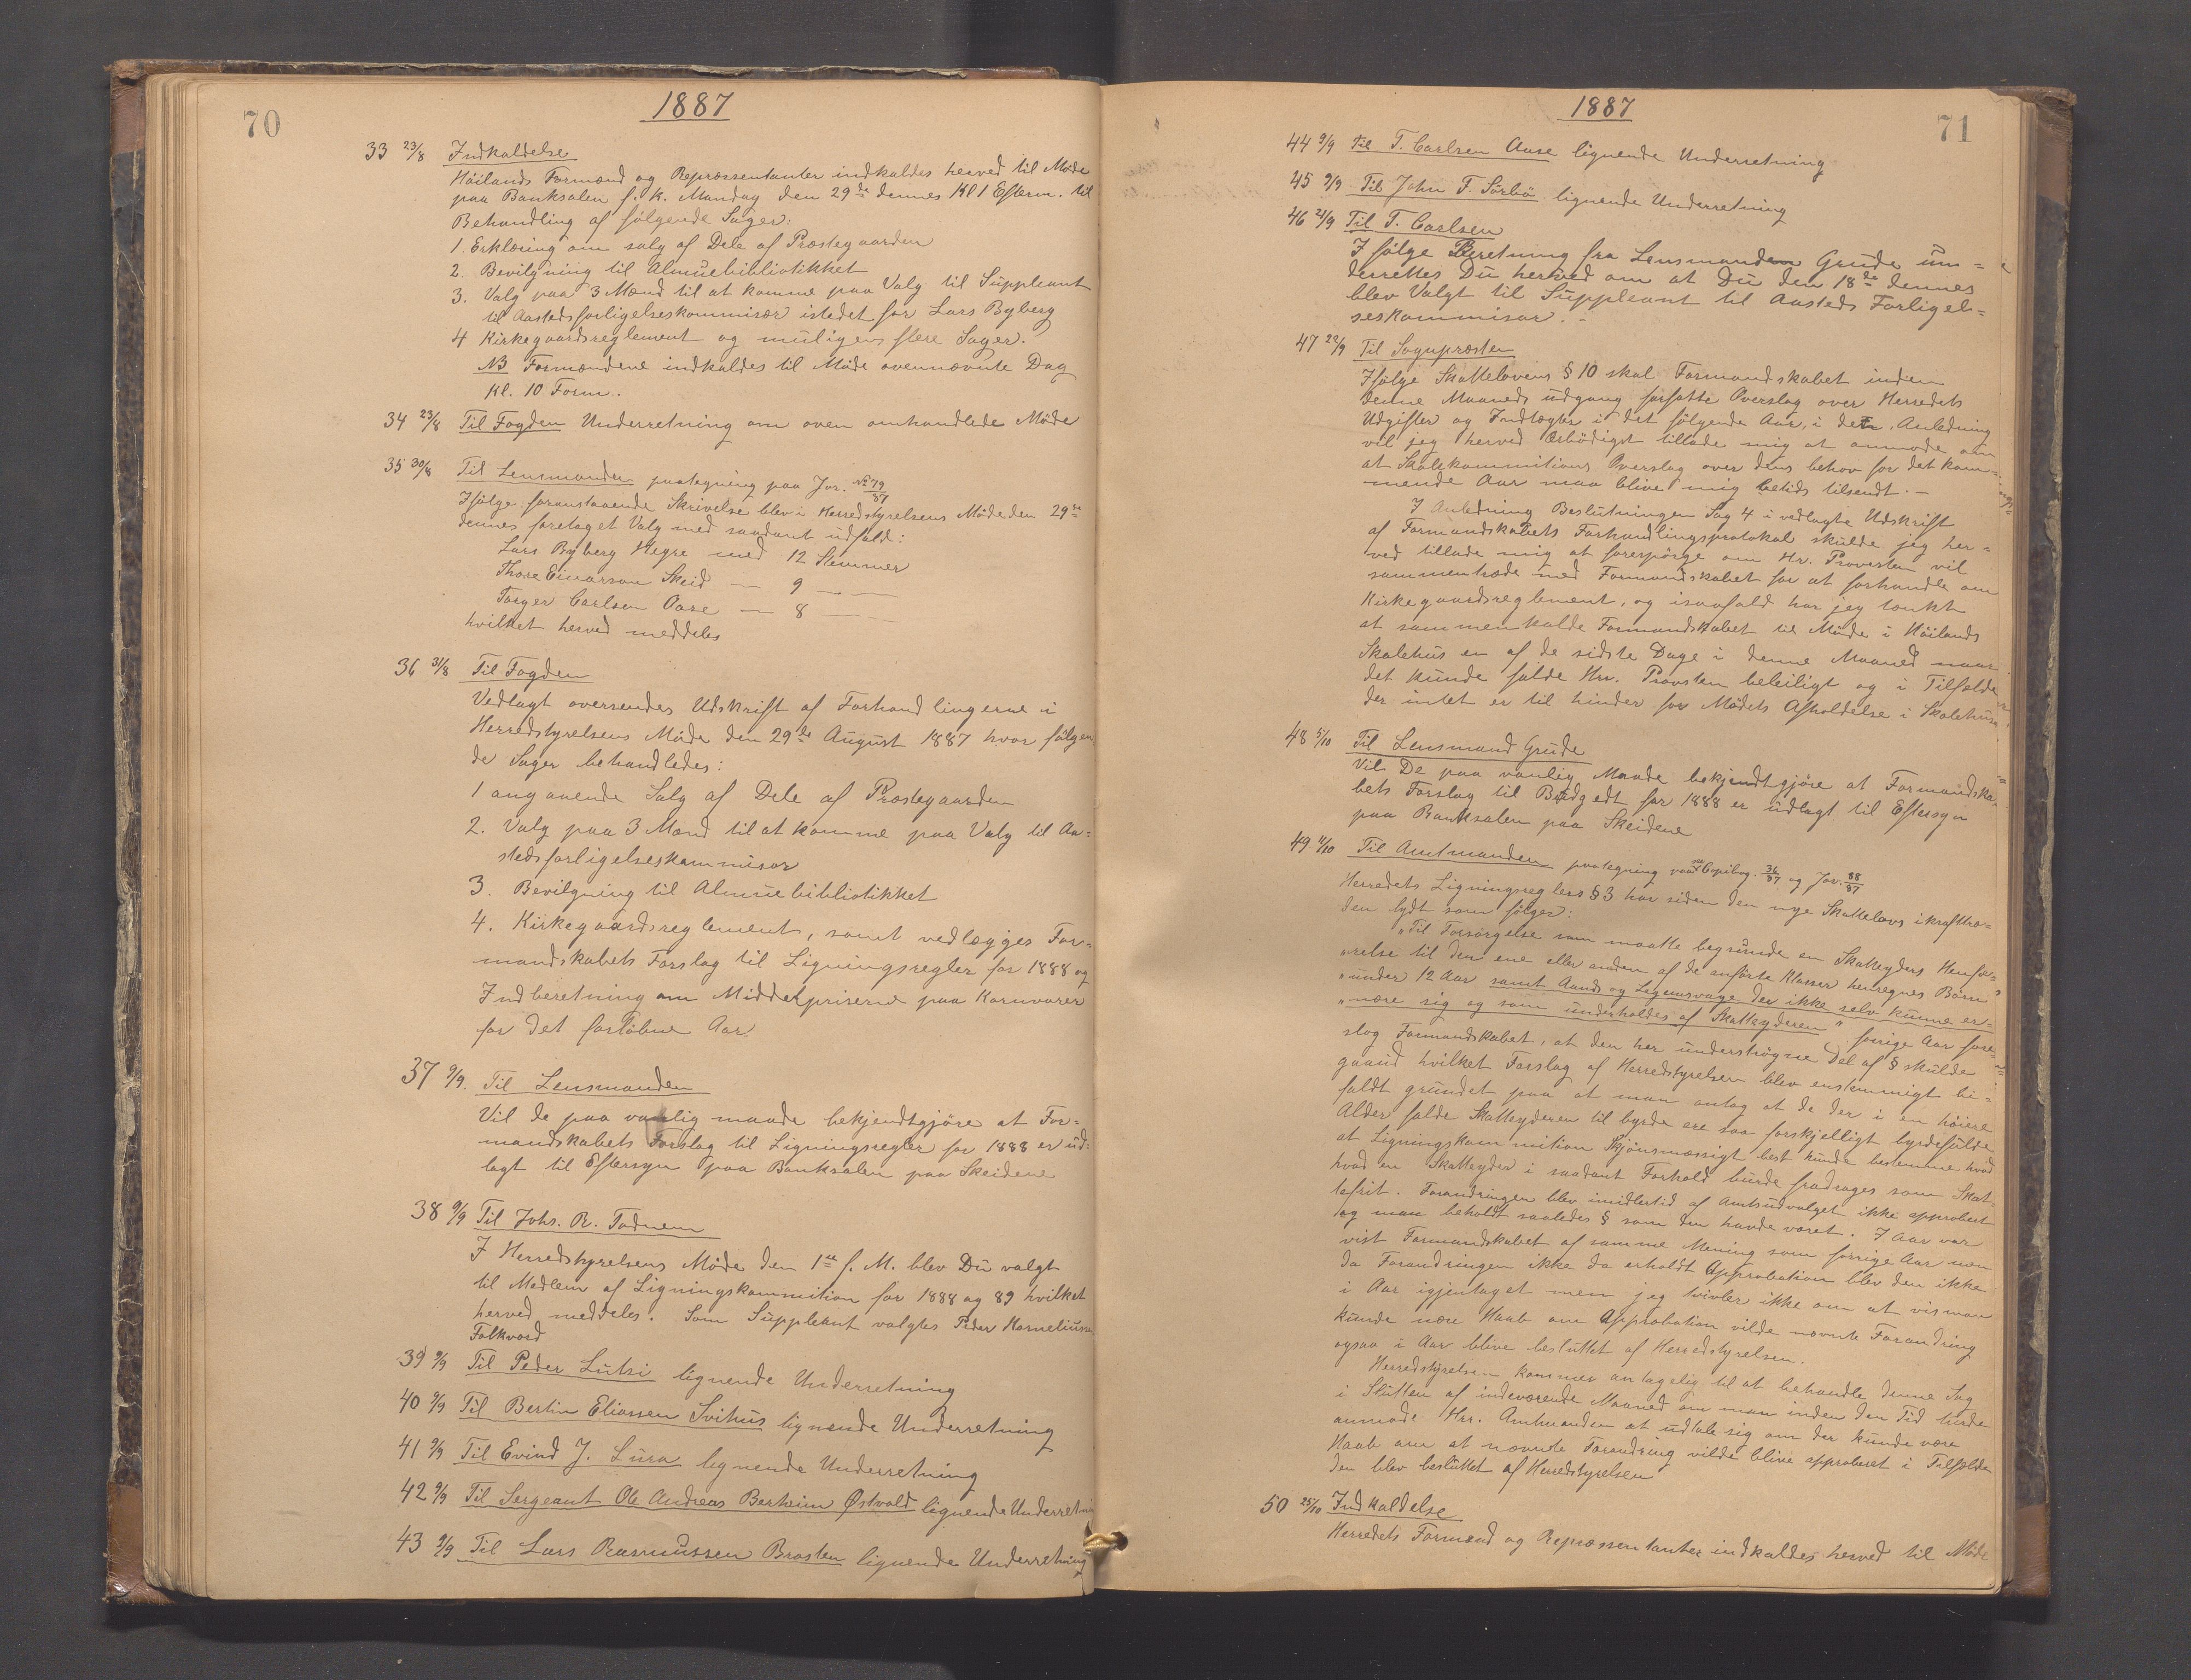 70
1887
33 23/8 Indkaldelse
Höilands Formænd og Repræssentanter indkaldes herved til Möde
paa Banksalen f. k. Mandag den 29de dennes Kl 1 Efterm. til
Behandling af følgende Sager:
1. Erklæring om salg af Dele af Præstegaarden
2. Bevilgning til Almuebibliotikket
3. Valg paa 3 Mænd til at komme paa Valg til Suppleant
til Aastedsforligelseskommisær istedet for Lars Byberg
4 Kirkegaardsreglement og muligens flere Sager.
NB Formændene indkaldes til Möde ovennævnte Dag
Kl. 10 Form.
34 23/8 Til Fogden Underretning om oven omhandlede Möde
35 30/8 Til Lensmanden paategning paa Jor. № 79/87
Ifölge foranstaaende Skrivelse blev i Herredstyrelsens Möde den 29de
dennes foretaget Valg med saadant udfald:
Lars Byberg Hegre med 12 Stemmer
Thore Einarson Skeid — 9 — —
Torger Carlsen Oase — 8 — —
hvilket herved meddeles
36 31/8 Til Fogden
Vedlagt oversendes Udskrift af Forhandlingerne i
Herredstyrelsens Möde den 29de August 1887 hvor fölgen
de Sager behandledes:
1 angaaende Salg af Dele af Præstegaarden
2. Valg paa 3 Mænd til at komme paa Valg til Aa=
stedsforligelseskommisær
3. Bevilgning til Almuebibliotikket
4. Kirkegaardsreglement, samt vedlægges For=
mandskabets Forslag til Ligningsregler for 1888 og
Indberetning om Middelpriserne paa Kornvarer
for det forløbne Aar
37 9/9. Til Lensmanden
Vil de paa vanlig maade bekjendtgjöre at For=
mandskabets Forslag til Ligningsregler for 1888 er ud=
lagt til Eftersyn paa Banksalen paa Skeidene
38 9/9 Til Johs. R. Tadnem
I Herredstyrelsens Möde den 1ste f. M. blev Du valgt
til Medlem af Ligningskommition for 1888 og 89 hvilket
herved meddeles. Som Suppleant valgtes Peder Korneliussen
Folkvord
39 9/9 Til Peder Lutsi lignende Underretning
40 9/9 Til Bertin Eliassen Svihus lignende Underretning
41 9/9 Til Evind J. Lura lignende Underretning
42 9/9 Til Sergeant Ole Andreas Bertzim Østvold lignende Underretning
43 9/9 Til Lars Rasmussen Brasten lignende Underretning
1887
71
44 9/9 Til T. Carlsen Aase lignende Underretning
45 9/9 Til John T. Sörbö lignende Underretning
46 21/9 Til T. Carlsen
I følge Beretning fra Lensmanden Grude un=
derrettes Du herved om at Du den 18de dennes
blev Valgt til Suppleant til Aasteds Forligel=
seskommisær. –
47 22/9 Til Sognpræsten
Ifölge Skattelovens § 10 skal Formandskabet inden
denne Maaneds udgang forfatte Overslag over Herredets
Udgifter og Indtægter i det fölgende Aar, i den Anledning
vil jeg herved ærbödigst tillade mig at anmode om
at Skolekommitions Overslag over dens behov for det kom=
mende Aar maa blive mig betids tilsendt. –
I Anledning Beslutningen Sag 4 i vedlagte Udskrift
af Formandskabets Forhandlingsprotokol skulde jeg her=
ved tillade mig at forespörge om Hr. Provesten vil
sammentræde med Formandskabet for at forhandle om
Kirkegaardsreglement, og isaafald har jeg tænkt
at sammenkalde Formandskabet til Möde i Höilands
Skolehus en af de sidste Dage i denne Maaned naar
det kunde falde Hrr. Provsten beleiligt og i Tilfælde
der intet er til hinder for Mödets Afholdelse i Skolehuset
48 5/10 Til Lensmand Grude
Vil De paa vanlig Maade bekjendtgjöre at Formandska
bets Forslag til Budgedt for 1888 er udlagt til Eftersyn
paa Banksalen paa Skeidene
49 11/10 Til Amtmanden paategning paa Copibog. 36/87 og Jor. 88/87
Herredets Ligningsreglers § 3 har siden den nye Skattelovs ikrafttræ=
den lydt som fölger:
„Til Forsörgelse som maatte begrunde en Skatteyders Henfö=
„relse til den ene eller anden af de anförte Klasser henregnes Börn
„under 12 Aar samt Aands og Legemsvage der ikke selv kunne er=
„nære sig og som underholdes af Skatteyderen" forrige Aar fore=
slog Formandskabet, at den her underströgne Del af § skulde
gaaud hvilket Forslag af Herredstyrelsen blev enstemmigt bi=
faldt grundet paa at man antog at de der i en höiere
Alder falde Skatteyderen til byrde ere saa forskjelligt byrdefulde
at Ligningskommition Skjönsmæssigt best kunde bestemme hvad
hvad en Skatteyder i saadant Forhold burde fradrages som Skat=
tefrit. Forandringen blev imidlertid af Amtsudvalget ikke approbert
og man beholdt saaledes § som den havde været. I Aar var
vist Formandskabet af samme Mening som forrige Aar men
da Forandringen ikke da erholdt Approbation blev den ikke
i Aar igjentaget men jeg tvivler ikke om at vis man
kunde nære Haab om Approbation vilde nævnte Forandring
ogsaa i Aar blive besluttet af Herredstyrelsen.
Herredstyrelsen kommer antagelig til at behandle denne Sag
i Slutten af indeværende Maaned om man inden den Tid turde
anmode Hrr. Amtmanden at udtale sig om der kunde være
Haab om at nævnte Forandring vilde blive approberet i Tilfælde
den blev besluttet af Herredstyrelsen
50 25/10 Indkaldelse
Herredets Formænd og Repræssentanter indkaldes herved til Möde